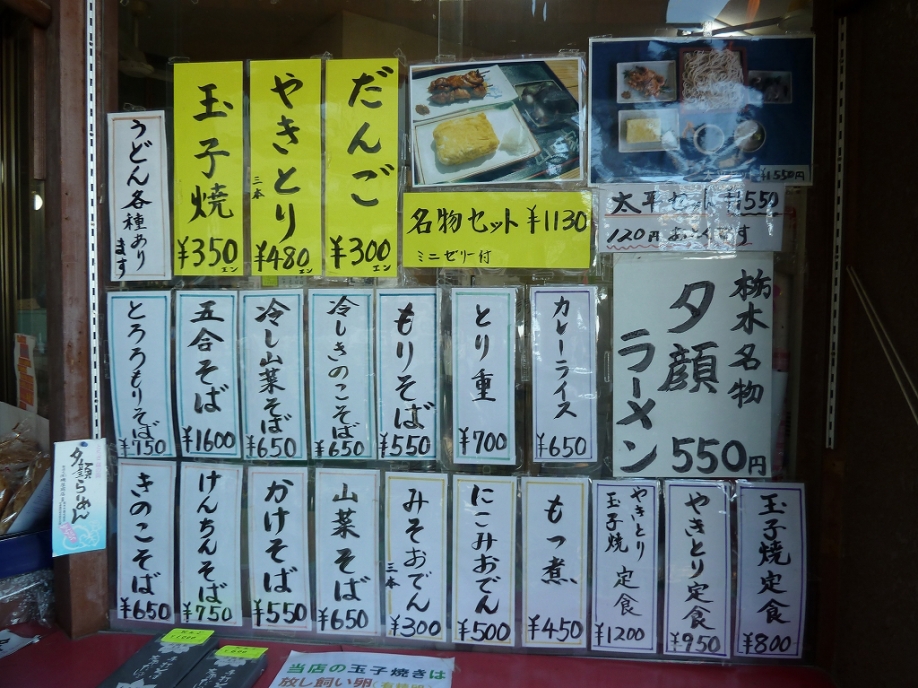 うどん各種あり
ます
玉子焼
¥350エン
やきとり
三本
¥480エン
だんご
¥300エン
名物セット ¥1130
ミニゼリー付
¥1550円
太平セット ¥1550
120円 おとくです
栃木名物
夕顔
ラーメン
550円
とろろもりそば
¥750
五合そば
¥1600
冷し山菜そば
¥650
冷しきのこそば
¥650
もりそば
¥550
とり重
¥700
カレーライス
¥650
夕顔らーめん
きのこそば
¥650
けんちんそば
¥750
かけそば
¥550
山菜そば
¥650
みそおでん
三本
¥300
にこみおでん
¥500
もつ煮
¥450
やきとり
玉子焼 定食
¥1200
やきとり定食
¥950
玉子焼定食
¥800
当店の玉子焼きは
放し飼い卵